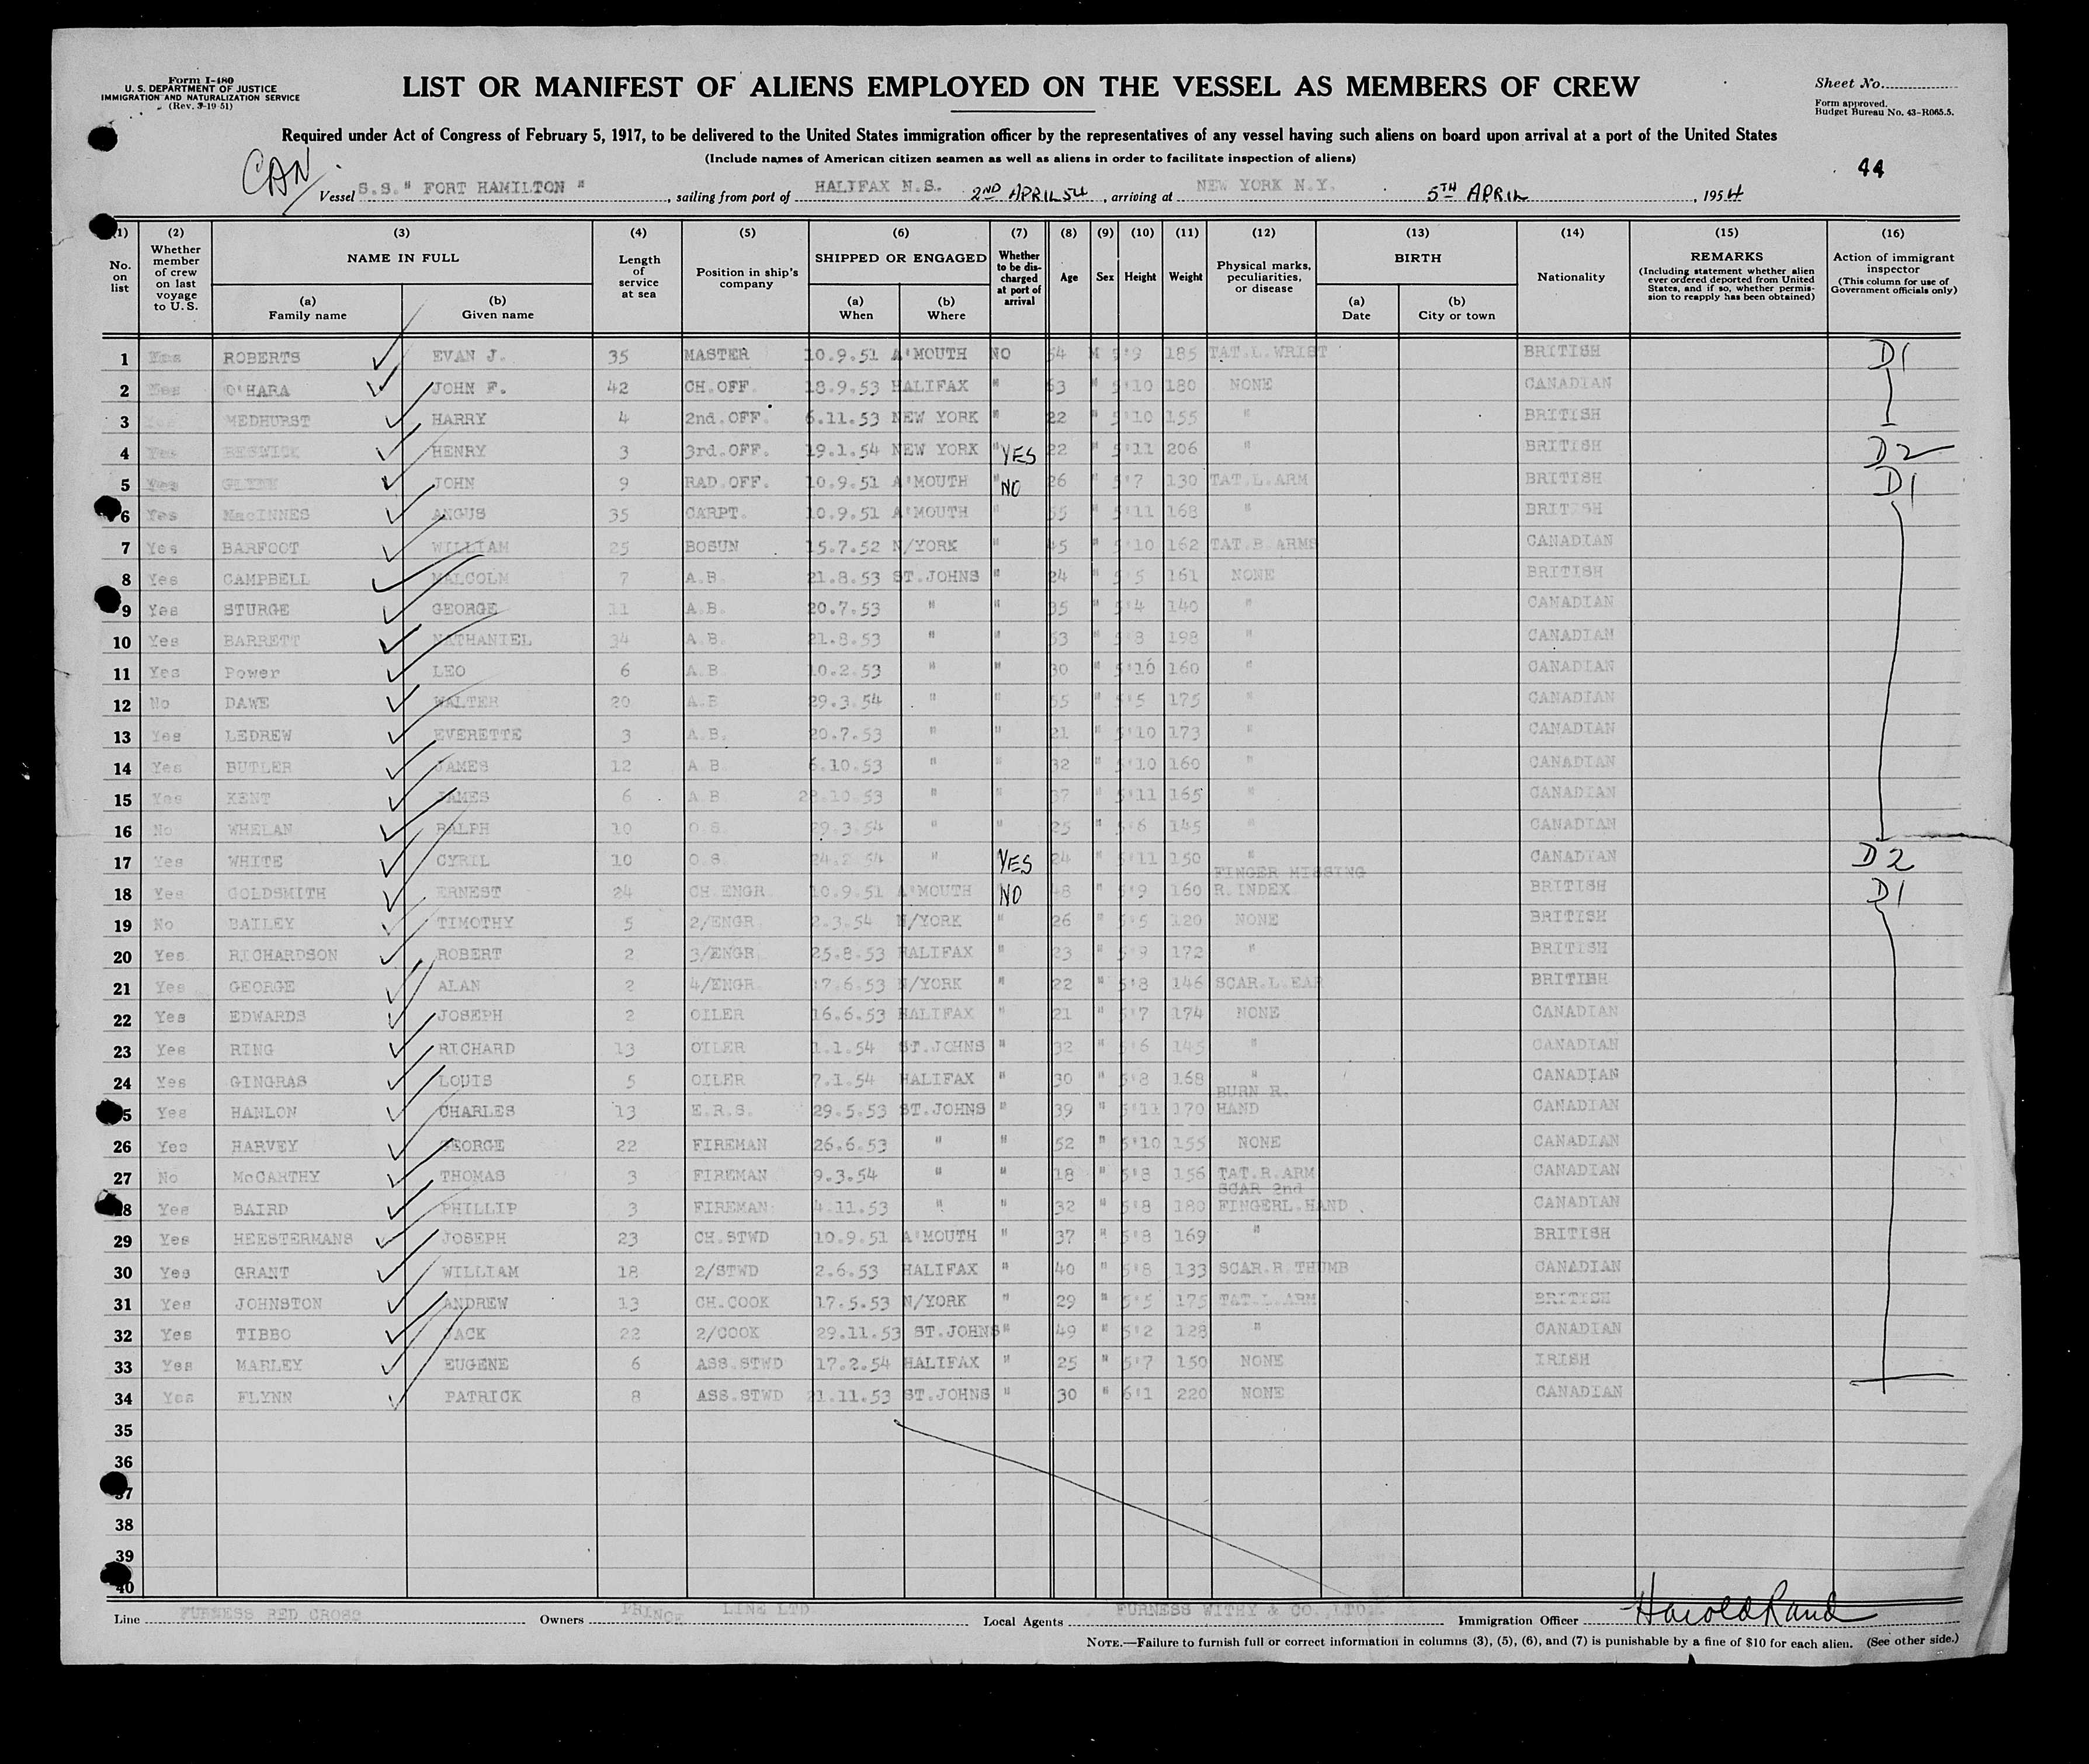 Form I-480
U. S. DEPARTMENT OF JUSTICE
IMMIGRATION AND NATURALIZATION SERVICE
(Rev. 3-19-51)
LIST OR MANIFEST OF ALIENS EMPLOYED ON THE VESSEL AS MEMBERS OF CREW
Sheet No.
Form approved.
Budget Bureau No. 43-R065.5.
Required under Act of Congress of February 5, 1917, to be delivered to the United States immigration officer by the representatives of any vessel having such aliens on board upon arrival at a port of the United States
(Include names of American citizen seamen as well as aliens in order to facilitate inspection of aliens)
CAN
44
Vessel S.S." FORT HAMILTON " , sailing from port of HALIFAX N.S. 2ND APRIL 54 , arriving at NEW YORK N.Y. 5TH APRIL , 1954
(1) No. on list
(2) Whether member of crew on last voyage to U. S.
(3) NAME IN FULL (a) Family name (b) Given name
(4) Length of service at sea
(5) Position in ship's company
(6) SHIPPED OR ENGAGED (a) When (b) Where
(7) Whether to be discharged at port of arrival
(8) Age
(9) Sex
(10) Height
(11) Weight
(12) Physical marks, peculiarities, or disease
(13) BIRTH (a) Date (b) City or town
(14) Nationality
(15) REMARKS (Including statement whether alien ever ordered deported from United States, and if so, whether permission to reapply has been obtained)
(16) Action of immigrant inspector (This column for use of Government officials only)
1 Yes ROBERTS EVAN J. 35 MASTER 10.9.51 A'MOUTH NO 54 M 5'9 185 TAT.L.WRIST BRITISH D1
2 Yes O'HARA JOHN F. 42 CH.OFF. 18.9.53 HALIFAX " 63 " 5'10 180 NONE CANADIAN
3 Yes MEDHURST HARRY 4 2nd.OFF. 6.11.53 NEW YORK " 22 " 5'10 155 " BRITISH
4 Yes BESWICK HENRY 3 3rd.OFF. 19.1.54 NEW YORK " YES 22 " 5'11 206 " BRITISH D2
5 Yes GLYNN JOHN 9 RAD.OFF. 10.9.51 A'MOUTH " NO 26 " 5'7 130 TAT.L.ARM BRITISH D1
6 Yes MacINNES ANGUS 35 CARPT. 10.9.51 A'MOUTH " 55 " 5'11 168 " BRITISH
7 Yes BARFOOT WILLIAM 25 BOSUN 15.7.52 N/YORK " 45 " 5'10 162 TAT.B.ARMS CANADIAN
8 Yes CAMPBELL MALCOLM 7 A.B. 21.8.53 ST.JOHNS " 24 " 5'5 161 NONE BRITISH
9 Yes STURGE GEORGE 11 A.B. 20.7.53 " " 35 " 5'4 140 " CANADIAN
10 Yes BARRETT NATHANIEL 34 A.B. 21.8.53 " " 53 " 5'8 198 " CANADIAN
11 Yes Power LEO 6 A.B 10.2.53 " " 30 " 5'10 160 " CANADIAN
12 No DAWE WALTER 20 A.B 29.3.54 " " 55 " 5'5 175 " CANADIAN
13 Yes LEDREW EVERETTE 3 A.B. 20.7.53 " " 21 " 5'10 173 " CANADIAN
14 Yes BUTLER JAMES 12 A.B 6.10.53 " " 32 " 5'10 160 " CANADIAN
15 Yes KENT JAMES 6 A.B 28.10.53 " " 37 " 5'11 165 " CANADIAN
16 No WHELAN RALPH 10 O.S. 29.3.54 " " 25 " 5'6 145 " CANADIAN
17 Yes WHITE CYRIL 10 O.S. 24.2.54 " YES 24 " 5'11 150 " CANADIAN D2
18 Yes GOLDSMITH ERNEST 24 CH.ENGR. 10.9.51 A'MOUTH NO 48 " 5'9 160 FINGER MISSING R.INDEX BRITISH D1
19 No BAILEY TIMOTHY 5 2/ENGR 2.3.54 N/YORK " 26 " 5'5 120 NONE BRITISH
20 Yes RICHARDSON ROBERT 2 3/ENGR 25.8.53 HALIFAX " 23 " 5'9 172 " BRITISH
21 Yes GEORGE ALAN 2 4/ENGR. 17.6.53 N/YORK " 22 " 5'8 146 SCAR.L.EAR BRITISH
22 Yes EDWARDS JOSEPH 2 OILER 16.6.53 HALIFAX " 21 " 5'7 174 NONE CANADIAN
23 Yes RING RICHARD 13 OILER 1.1.54 ST.JOHNS " 32 " 5'6 145 " CANADIAN
24 Yes GINGRAS LOUIS 5 OILER 7.1.54 HALIFAX " 30 " 5'8 168 " CANADIAN
25 Yes HANLON CHARLES 13 E.R.S. 29.5.53 ST.JOHNS " 39 " 5'11 170 BURN R. HAND CANADIAN
26 Yes HARVEY GEORGE 22 FIREMAN 26.6.53 " " 52 " 5'10 155 NONE CANADIAN
27 No McCARTHY THOMAS 3 FIREMAN 9.3.54 " " 18 " 5'8 156 TAT.R.ARM CANADIAN
28 Yes BAIRD PHILLIP 3 FIREMAN 4.11.53 " " 32 " 5'8 180 SCAR 2nd FINGERL.HAND CANADIAN
29 Yes HEESTERMANS JOSEPH 23 CH.STWD 10.9.51 A'MOUTH " 37 " 5'8 169 " BRITISH
30 Yes GRANT WILLIAM 18 2/STWD 2.6.53 HALIFAX " 40 " 5'8 133 SCAR.R.THUMB CANADIAN
31 Yes JOHNSTON ANDREW 13 CH.COOK 17.5.53 N/YORK " 29 " 5'5 175 TAT.L.ARM BRITISH
32 Yes TIBBO JACK 22 2/COOK 29.11.53 ST.JOHNS " 49 " 5'2 128 " CANADIAN
33 Yes MARLEY EUGENE 6 ASS.STWD 17.2.54 HALIFAX " 25 " 5'7 150 NONE IRISH
34 Yes FLYNN PATRICK 8 ASS.STWD 21.11.53 ST.JOHNS " 30 " 6'1 220 NONE CANADIAN
35
36
37
38
39
40
Line FURNESS RED CROSS Owners PRINCE LINE LTD Local Agents FURNESS WITHY & CO.,LTD. Immigration Officer Harold Rand
NOTE.—Failure to furnish full or correct information in columns (3), (5), (6), and (7) is punishable by a fine of $10 for each alien. (See other side.)